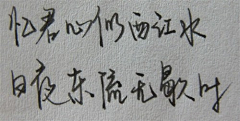 忆君心似西江水
日夜东流无歇时